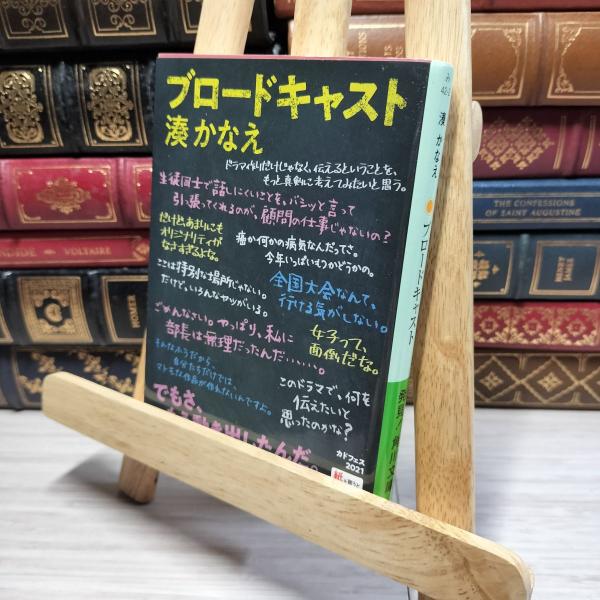 ブロードキャスト
湊 かなえ
ドラマ作りだけじゃなく、伝えるということを、
もっと真剣に考えてみたいと思う。
生徒同士で話しにくいことを、バシッと言って
引っ張ってくれるのが、顧問の仕事じゃないの?
だけど、あまりにも
オリジナリティが
なさすぎるとな。
癌か何かの病気なんだってさ。
今年いっぱいもつかどうかの。
ここは特別な場所じゃない。
だけど、いろんなヤツがいる。
全国大会なんて、
行ける気がしない。
ごめんなさい。やっぱり、私に
部長は無理だったんだ……。
女子って、
面倒だな。
そんなふうだから、
自分たちだけでは
マトモな作品が作れないんですよ。
このドラマで、何を
伝えたいと
思ったのかな?
でもさ、
動き出したんだ。
カドフェス
2021
湊 かなえ
ブロードキャスト
発見!
VOLTAIRE
HOMER
THE CONFESSIONS
OF SAINT AUGUSTINE
HENRY
JAMES